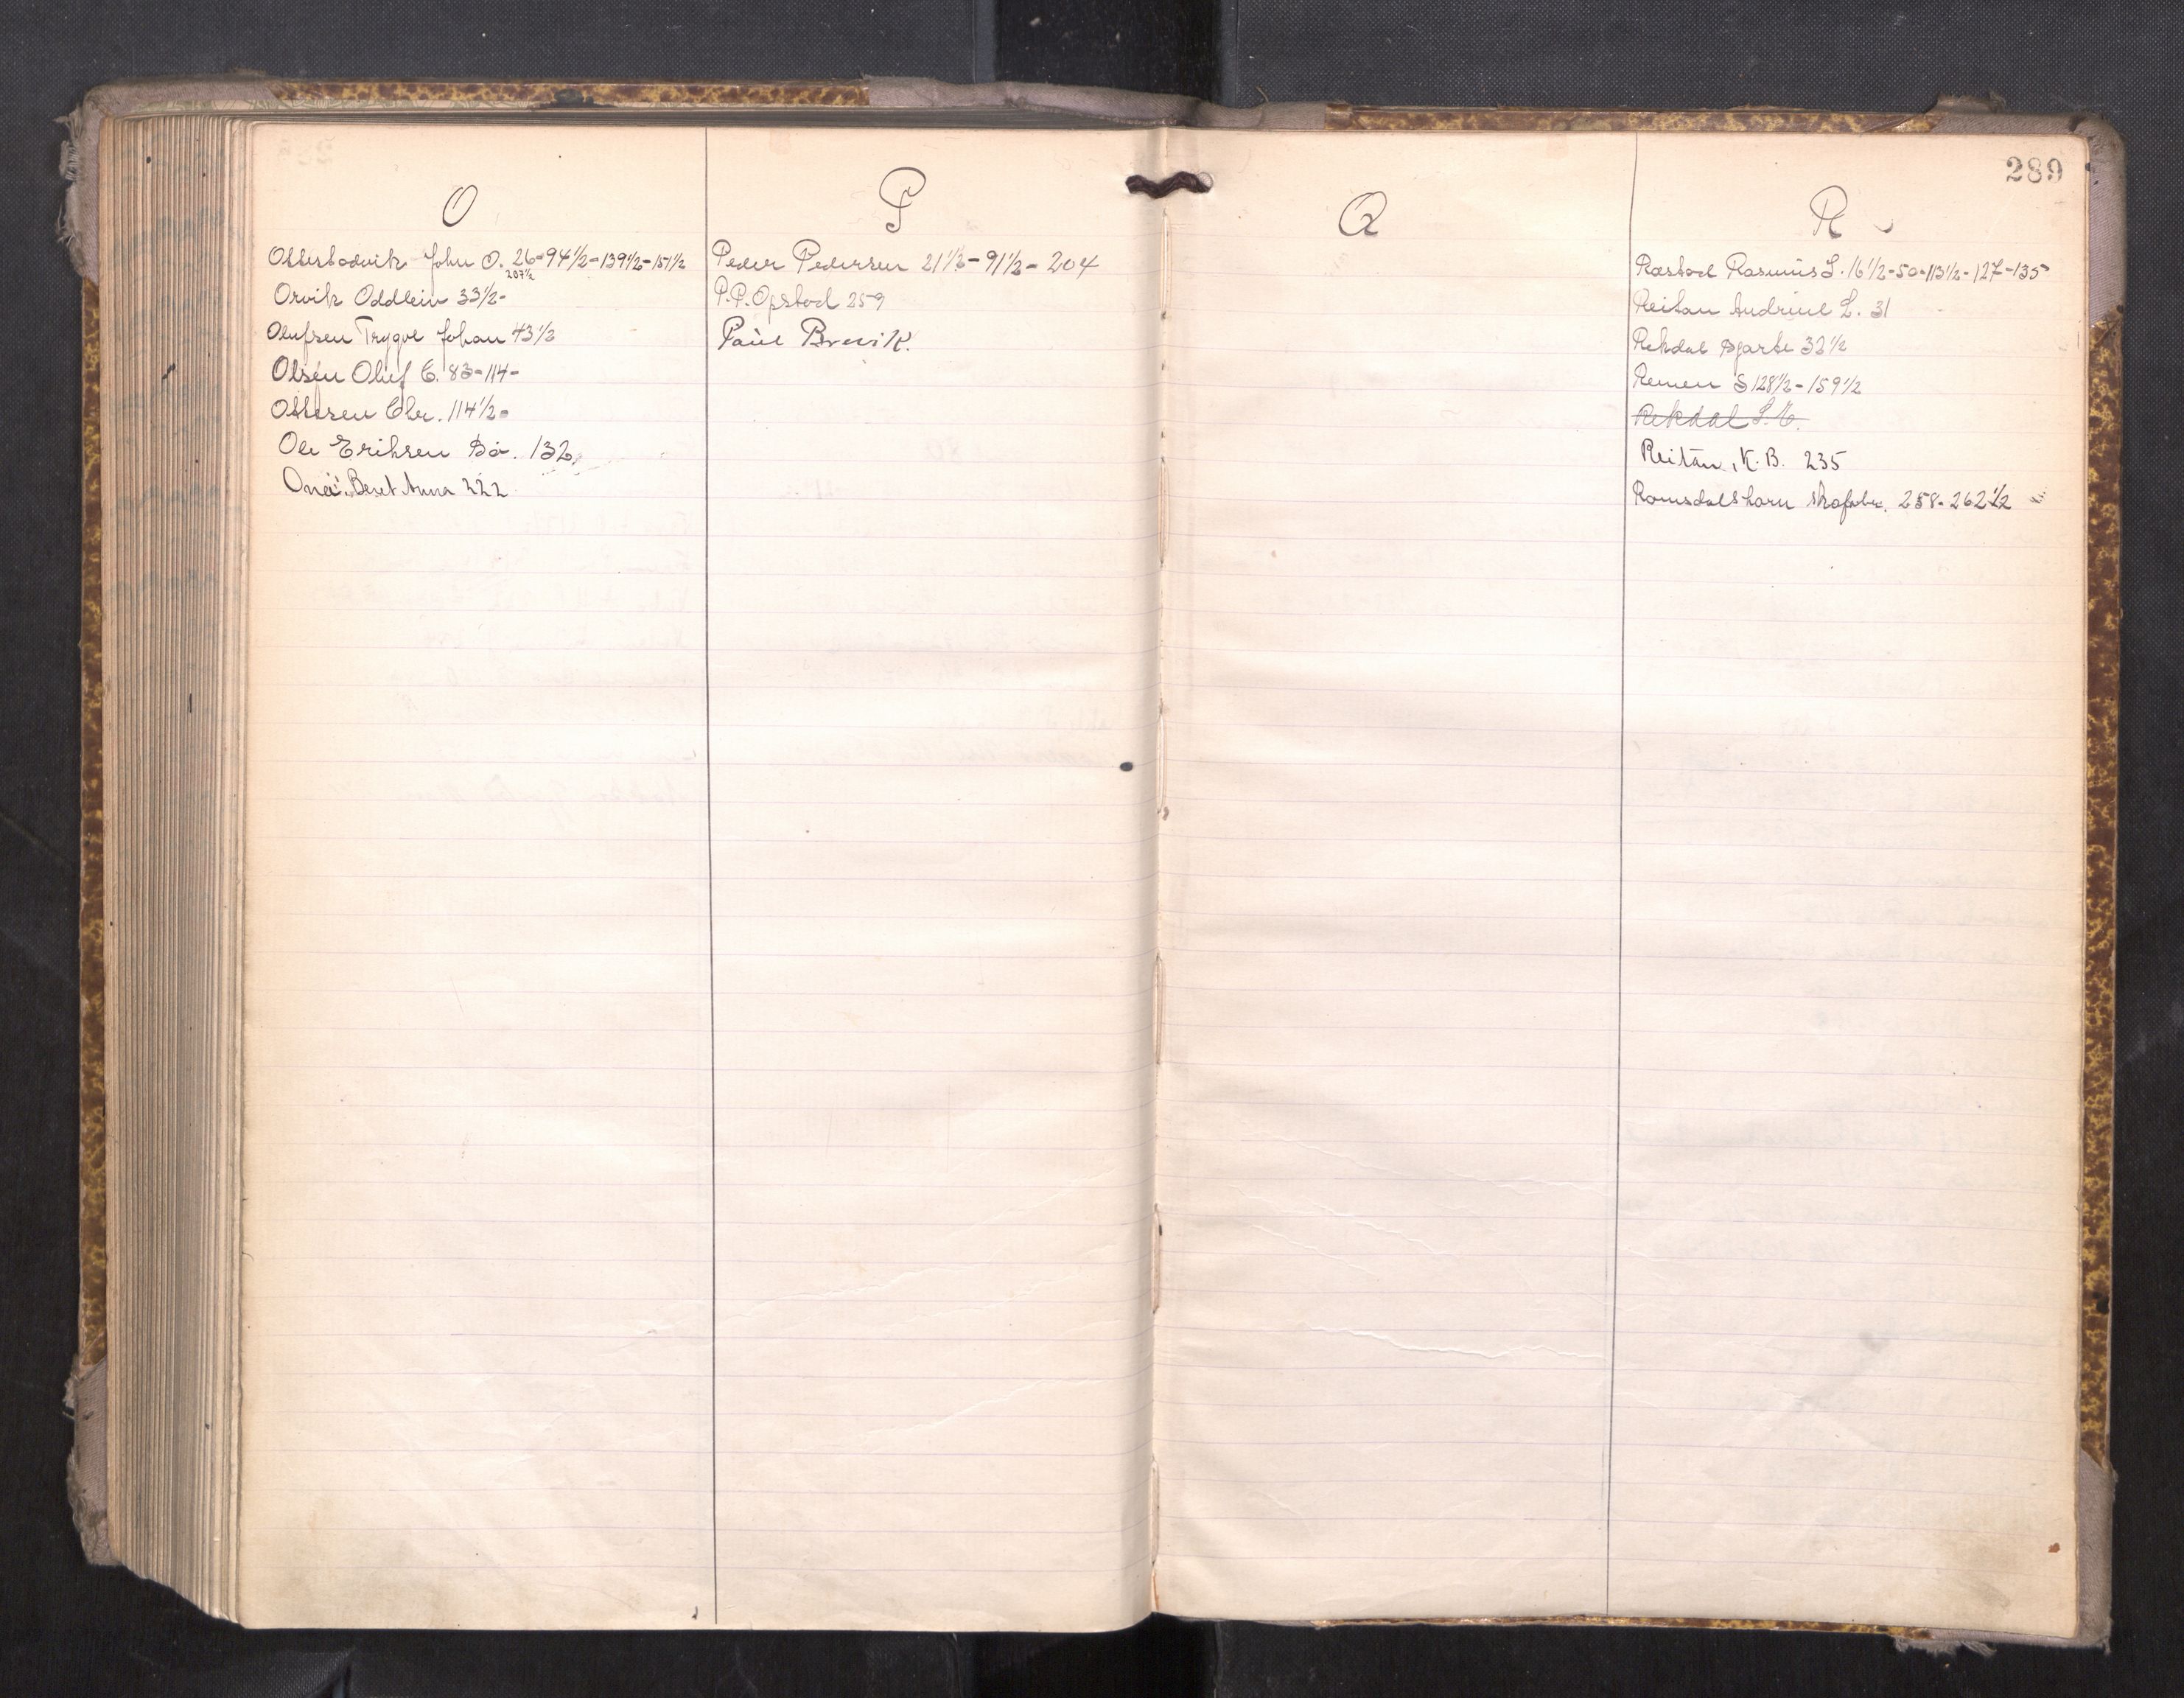 289
O
Otterbodvik John O. 26-94½-139½-151½
207½
Orvik Oddlein 33½-
Olufsen Trygve Johan 43½
Olsen Oluf E. 83-114-
Ottesen Chr. 114½-
Ole Eriksen Bø. 132
Beret Anna 222
P
Peder Pedersen 21½-91½-204
P.P. Opstad 259
Paul Brevik.
Q
R
Rastad Rasmus L. 16½-50-113½-127-135
Reitan Andrine L. 31
Rekdal Bjarte 33½
Remen S 128½-159½
Rekdal
Reitan, K.B. 235
Romsdalshorn 258-262½